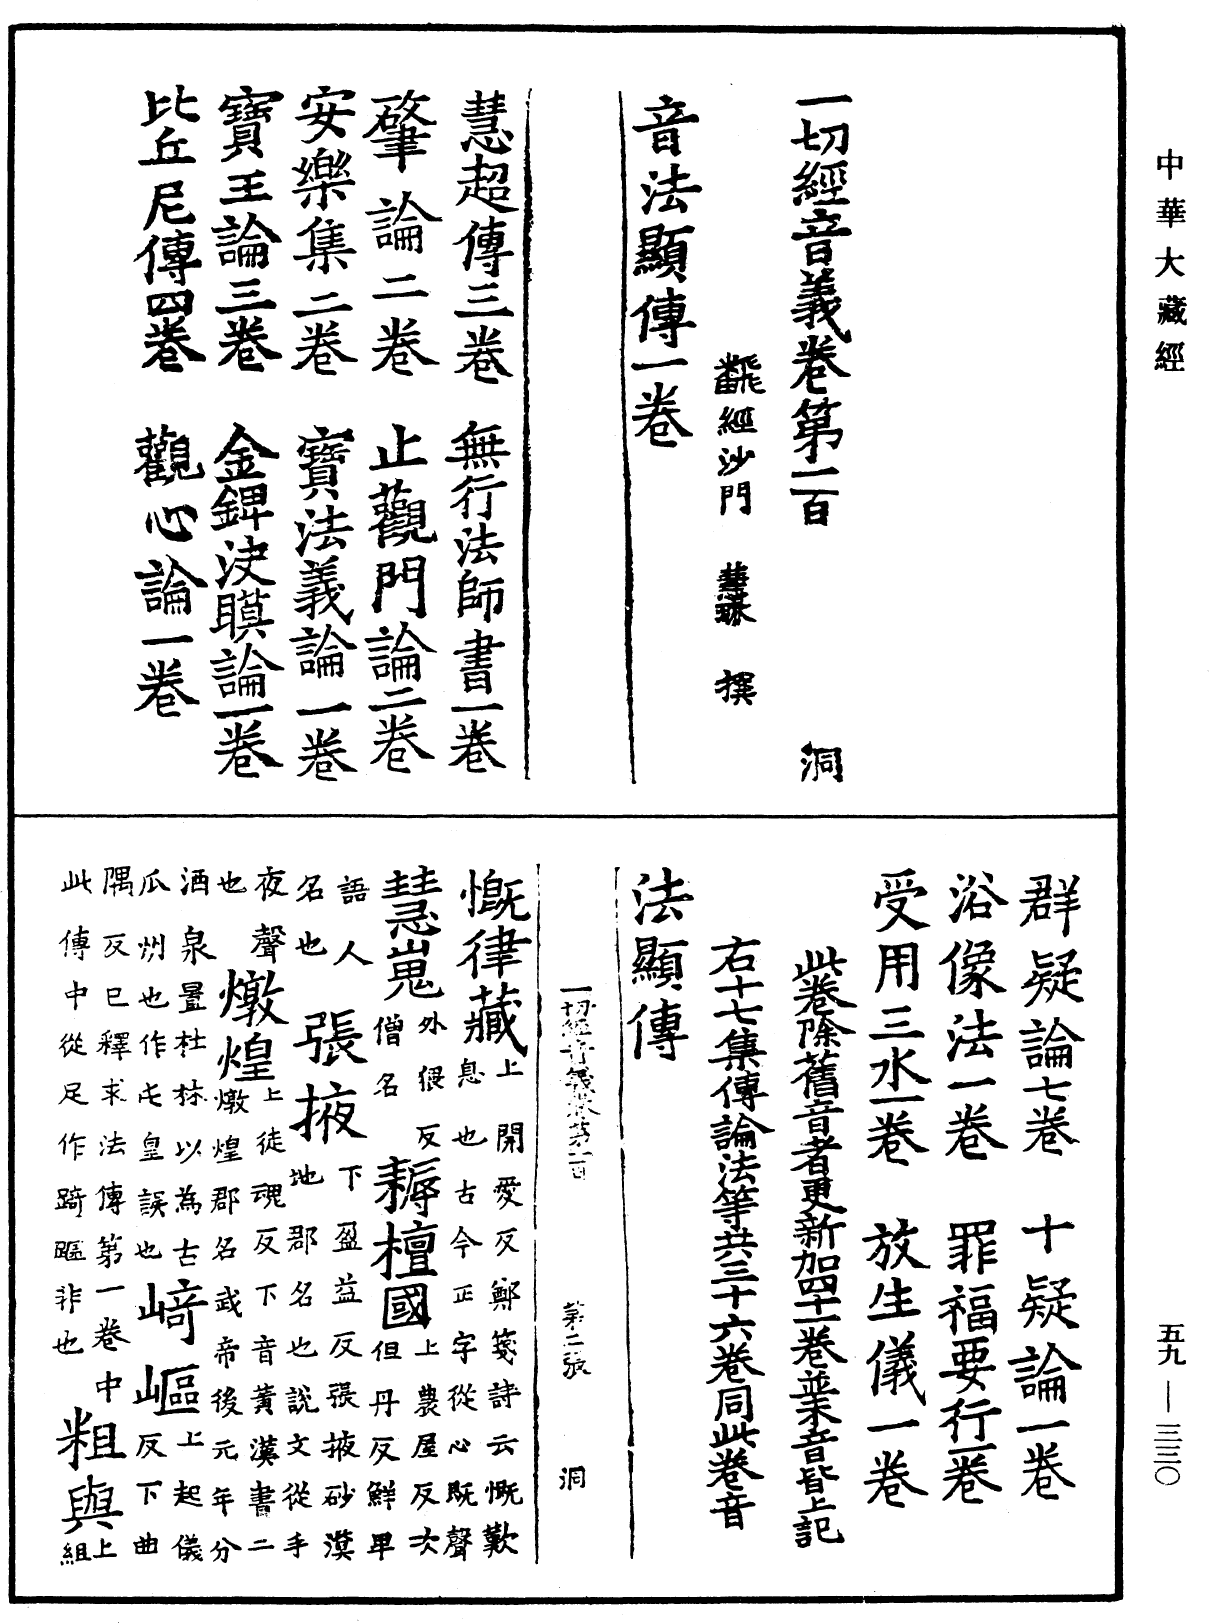 中華大藏經
一切經音義卷第一百 洞
翻經沙門 慧琳 撰
音法顯傳一卷
慧超傳三卷 無行法師書一卷
肇論二卷 止觀門論二卷
安樂集二卷 寶法義論一卷
寶王論三卷 金錍決瞙論一卷
比丘尼傳四卷 觀心論一卷
群疑論七卷 十疑論一卷
浴像法一卷 罪福要行一卷
受用三水一卷 放生儀一卷
此卷除舊音者更新加四十一卷並未音皆上記
右十七集傳論法等共三十六卷同此卷音
法顯傳
一切經音義卷第一百 第二張 洞
慨律藏上開愛反鄭箋詩云慨歎
息也古今正字從心既聲
慧嵬外偎反僧名 耨檀國上農屋反次但丹反鮮卑
語人名也 張掖下盈益反張掖砂漠地郡名也說文從手
夜聲也 燉煌上徒魂反下音黃漢書二燉煌郡名武帝後元年分
酒泉置杜林以為古
瓜州也作㡯皇誤也 崎嶇上起儀反下曲
隅反已釋求法傳第一卷中
此傳中從足作踦䠓非也 粗與上組
五九—三三〇